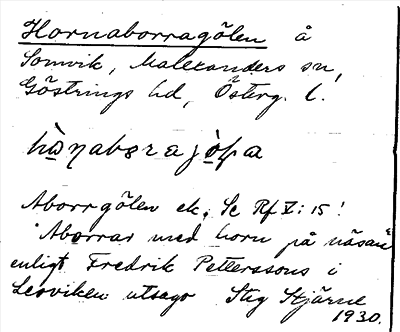 Hornaborragölen å
Somvik, Malexanders sn,
Göstrings hd, Österg. l.
Aborrgölen ek. Se Rf V: 15!
"Aborrar med horn på näsan"
enligt Fredrik Petterssons i
Leoviken utsago Stig Stjärne
1930.